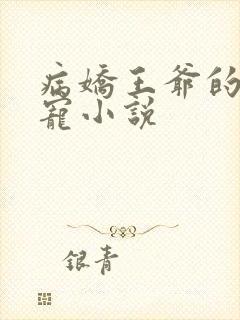 病嬌王爺的
寵小說
銀青